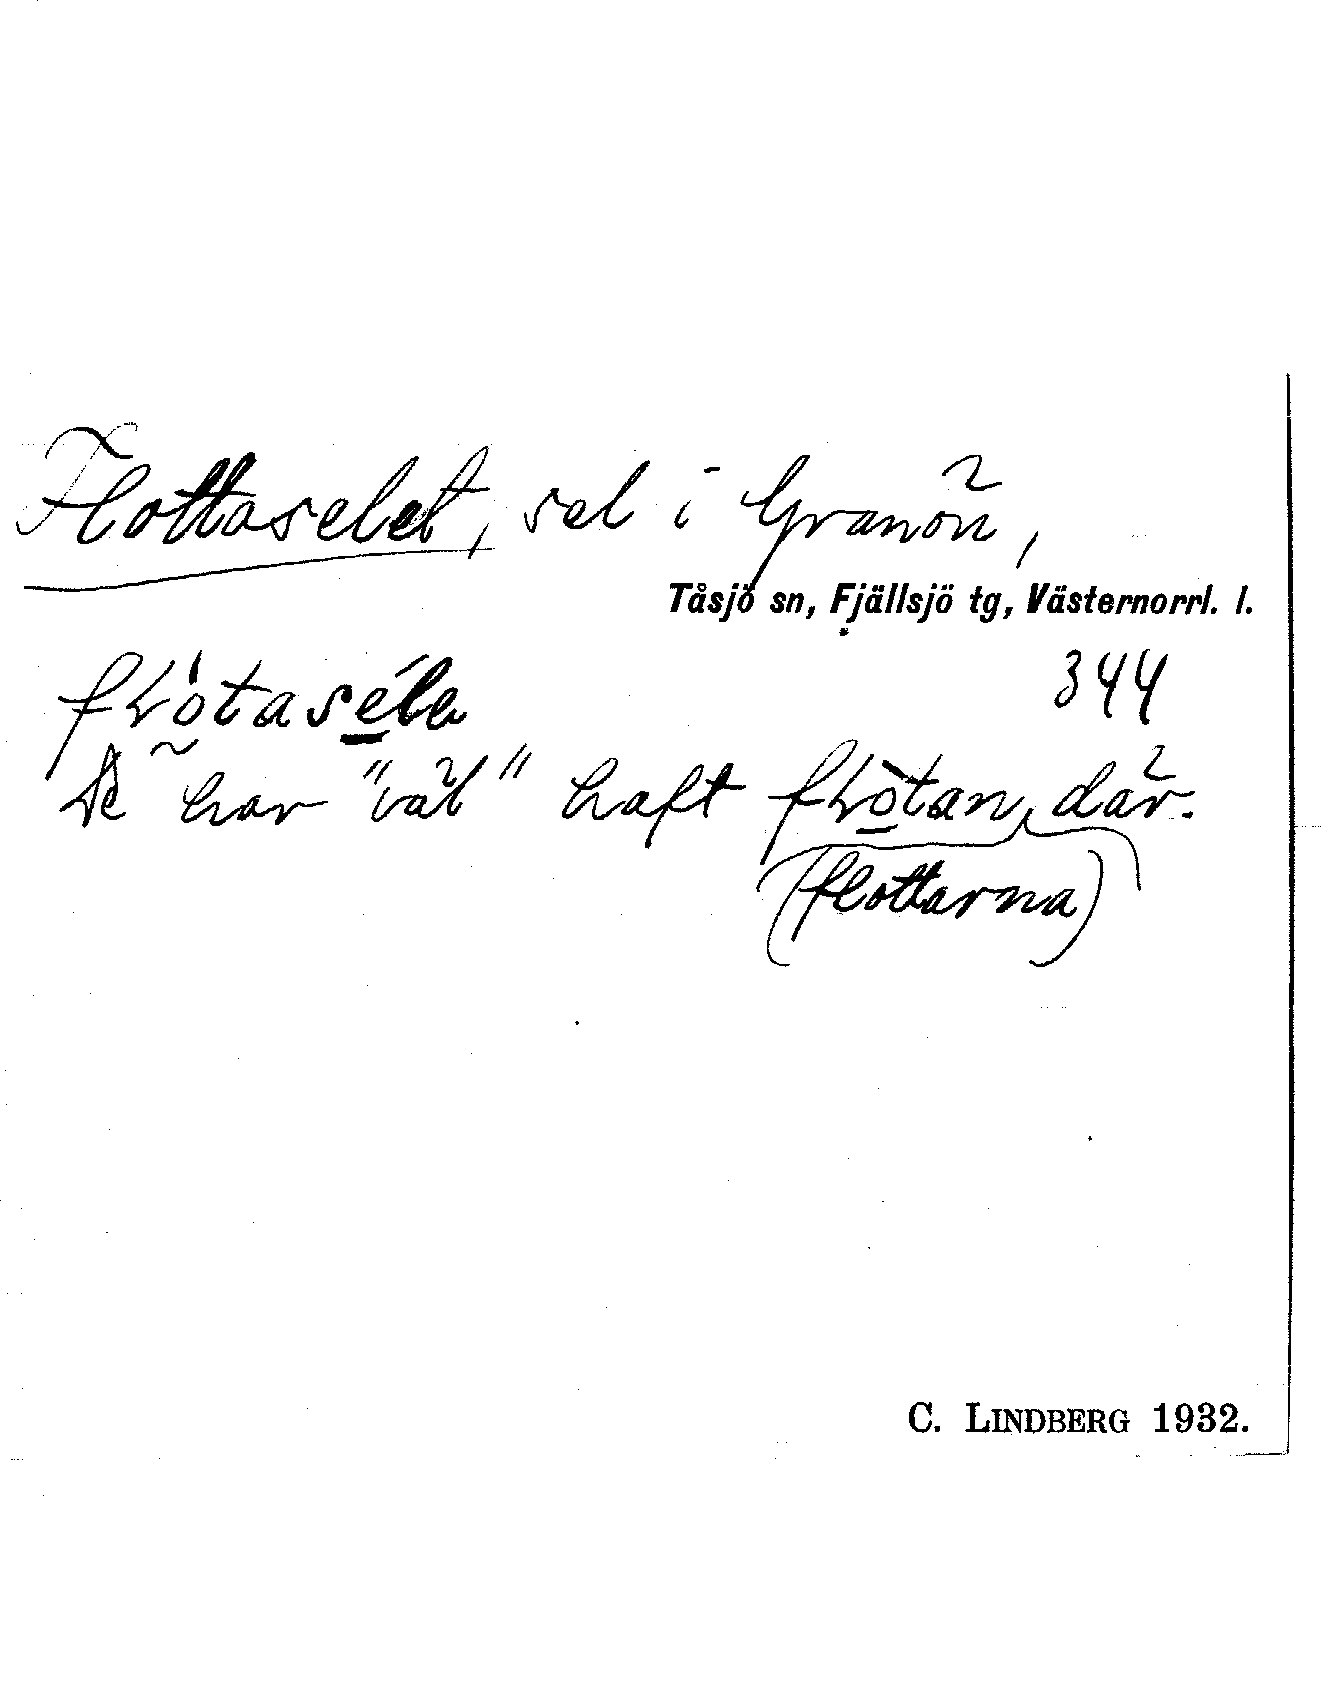 Flottaselet, sel i Granön,
Tåsjö sn, Fjällsjö tg, Västernorrl. l.
344
De har "väl" haft där.
(flottarna)
C. LINDBERG 1932.